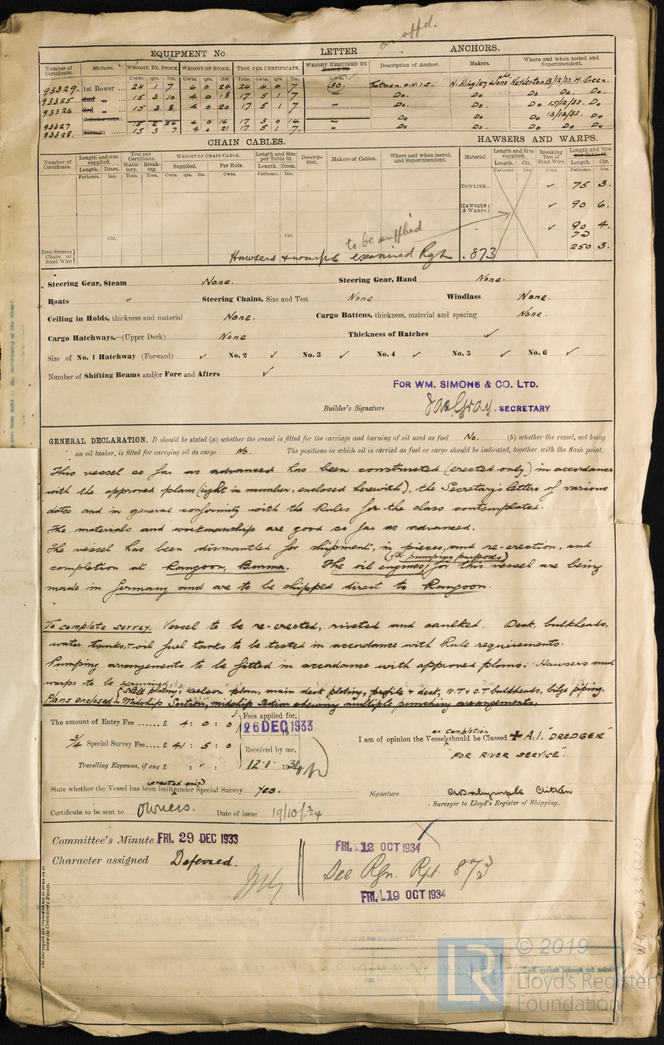 EQUIPMENT No LETTER ANCHORS.
Number of Certificate. Anchors. WEIGHT, EX. STOCK. WEIGHT OF STOCK. TEST, PER CERTIFICATE. WEIGHT REQUIRED BY Description of Anchor. Makers. Where and when tested and Superintendent.
Cwts. qrs. lbs. Cwts. qrs. lbs. Tons. cwts. qrs. lbs.
93329 1st Bower 24 1 7 6 0 24 24 4 0 7 30. N. Hingley & Sons Netherton 13/12/33. H. Green.
93325 2nd 17 5 1 7 Do. Do. Do.
93326 15 3 8 4 0 20 17 5 1 7 Do. Do. 15/12/33. Do
93327 4 0 16 17 3 0 14 Do. Do 13/12/33. Do
93328 15 3 7 4 0 21 17 5 1 7 Do. Do Do
CHAIN CABLES. HAWSERS AND WARPS.
Number of Certificate. Length and size supplied. Test per Certificate. WEIGHT OF CHAIN CABLE. Length and Size per Table 53. Description. Makers of Cables. Where and when tested, and Superintendent. Material Length and Size supplied. Breaking Test of Steel Wire. Length and Size
Length. Diam. Statutory. Breaking. Supplied. Per Rule. Length. Diam. Length. Cir. Length. Cir.
Fathoms. Ins. Tons. Tons. Cwts. qrs. lbs. Cwts. Fathoms. Ins. Fathoms Ins. Fathoms. Ins.
TOWLINE 75 3.
HAWSERS & WARPS 90 6.
90 4.
Cir. Cir. 250 3.
to be supplied
Iron Stream Chain or Steel Wire
Hawsers & warps examined Rgn. 873
Steering Gear, Steam None. Steering Gear, Hand None.
Boats Steering Chains, Size and Test None Windlass None.
Ceiling in Holds, thickness and material None. Cargo Battens, thickness, material and spacing None.
Cargo Hatchways.—(Upper Deck) None Thickness of Hatches
Size of No. 1 Hatchway (Forward) No. 2 No. 3 No. 4 No. 5 No. 6
Number of Shifting Beams and/or Fore and Afters
FOR WM. SIMONS & CO. LTD.
Builder's Signature Gray. SECRETARY
GENERAL DECLARATION. It should be stated (a) whether the vessel is fitted for the carriage and burning of oil used as fuel No. (b) whether the vessel, not being
an oil tanker, is fitted for carrying oil as cargo No. The positions in which oil is carried as fuel or cargo should be indicated, together with the flash point.
This vessel so far as advanced has been constructed (erected only) in accordance
with the approved plans (eight in number, enclosed herewith), the Secretary's letters of various
dates and in general conformity with the Rules for the class contemplated.
The materials and workmanship are good so far as advanced.
The vessel has been dismantled for shipment, in pieces, and re-erection, and
(for pumping purposes)
completion at Rangoon, Burma. The oil engines, for this vessel are being
made in Germany and are to be shipped direct to Rangoon.
To complete survey. Vessel to be re-erected, riveted and caulked. Deck, bulkheads,
water tanks, & oil fuel tanks to be tested in accordance with Rule requirements.
Pumping arrangements to be fitted in accordance with approved plans: Hawsers and
warps to be examined.
Shell plating, keelson plan, main deck plating, profile & deck, W.T & O.T bulkheads, bilge piping.
Plans enclosed - Midship Section, midship section showing multiple punching arrangements.
The amount of Entry Fee £ 4 : 0 : 0 Fees applied for,
26 DEC 1933
3/4 Special Survey Fee £ 41 : 5 : 0 Received by me,
Travelling Expenses, if any £ 12.1.34
on completion
I am of opinion the Vessel should be Classed ✠ A.1. DREDGER
"FOR RIVER SERVICE".
State whether the Vessel has been built under Special Survey Yes. Signature
Surveyor to Lloyd's Register of Shipping.
Certificate to be sent to Owners. Date of issue 19/10/34
Committee's Minute FRI. 29 DEC 1933 FRI. 12 OCT 1934
Character assigned Deferred. See Rgn. Rpt. 873
FRI. 19 OCT 1934
LR © 2019
Lloyd's Register
Foundation